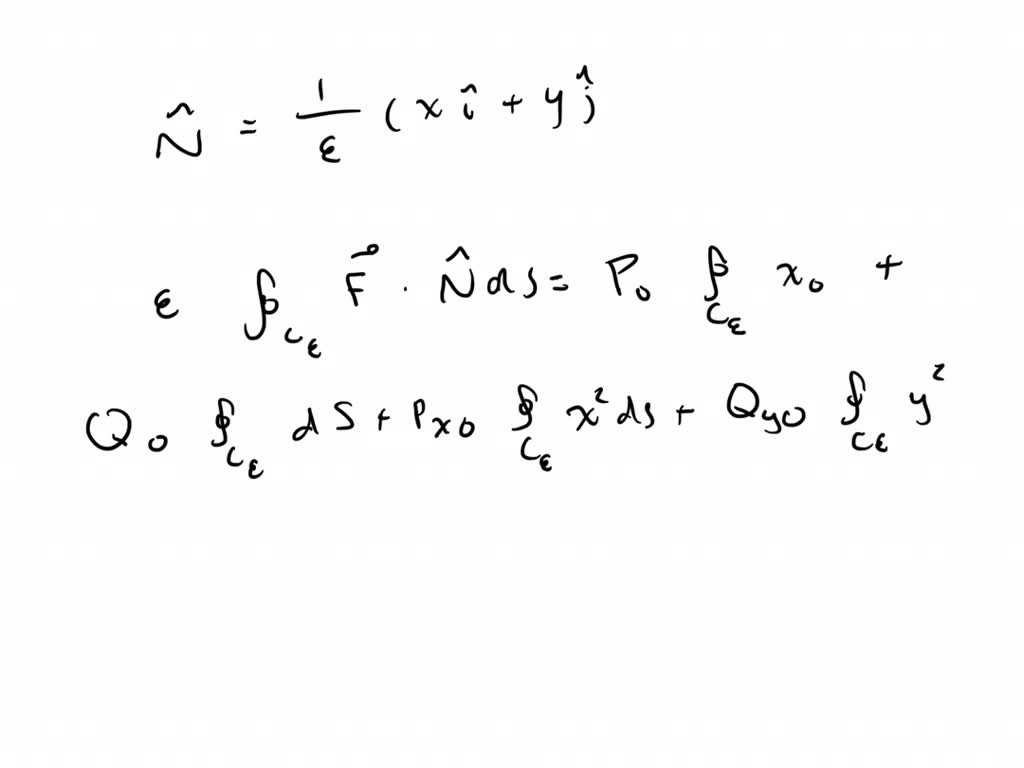 N̂ = 1/ε (x î + y ĵ)
ε ∮_{Cε} F⃗ · N̂ ds = P₀ ∮_{Cε} x₀ +
Q₀ ∮_{Cε} dS + P_{x0} ∮_{Cε} x² ds + Q_{y0} ∮_{Cε} y²